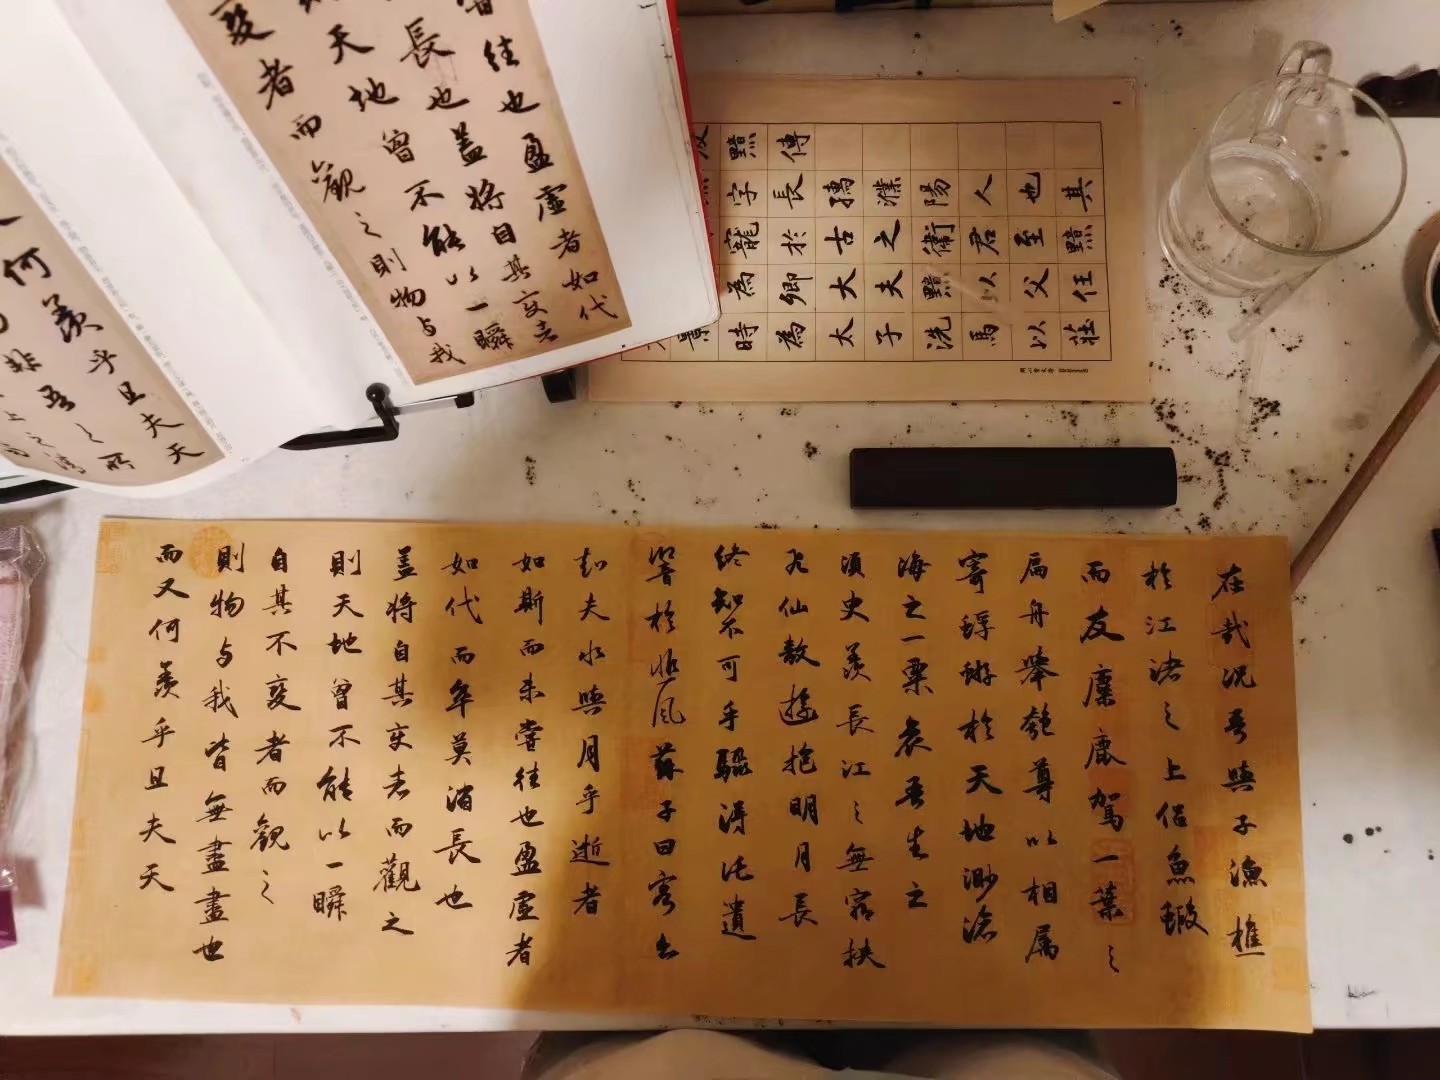 嘗往也盈虛者如代
長也盖將自其変者
天地曾不能以一瞬
變者而觀之則物与我
何羨乎且夫天
非吾之所
上之清
黯傳
字長孺濮陽人也其
寵於古之衞君至黯
為卿大夫黯以父任
景時為太子洗馬以莊
在哉況吾與子漁樵
於江渚之上侣魚蝦
而友麋鹿駕一葉之
扁舟舉匏尊以相属
寄蜉蝣於天地渺滄
海之一粟哀吾生之
須臾羨長江之無窮挾
飛仙敖遊抱明月長
終知不可乎驟得託遺
響於悲風蘇子曰客亦
知夫水與月乎逝者
如斯而未嘗往也盈虛者
如代而卒莫消長也
盖將自其变者而觀之
則天地曾不能以一瞬
自其不変者而觀之
則物与我皆無盡盡也
而又何羨乎且夫天